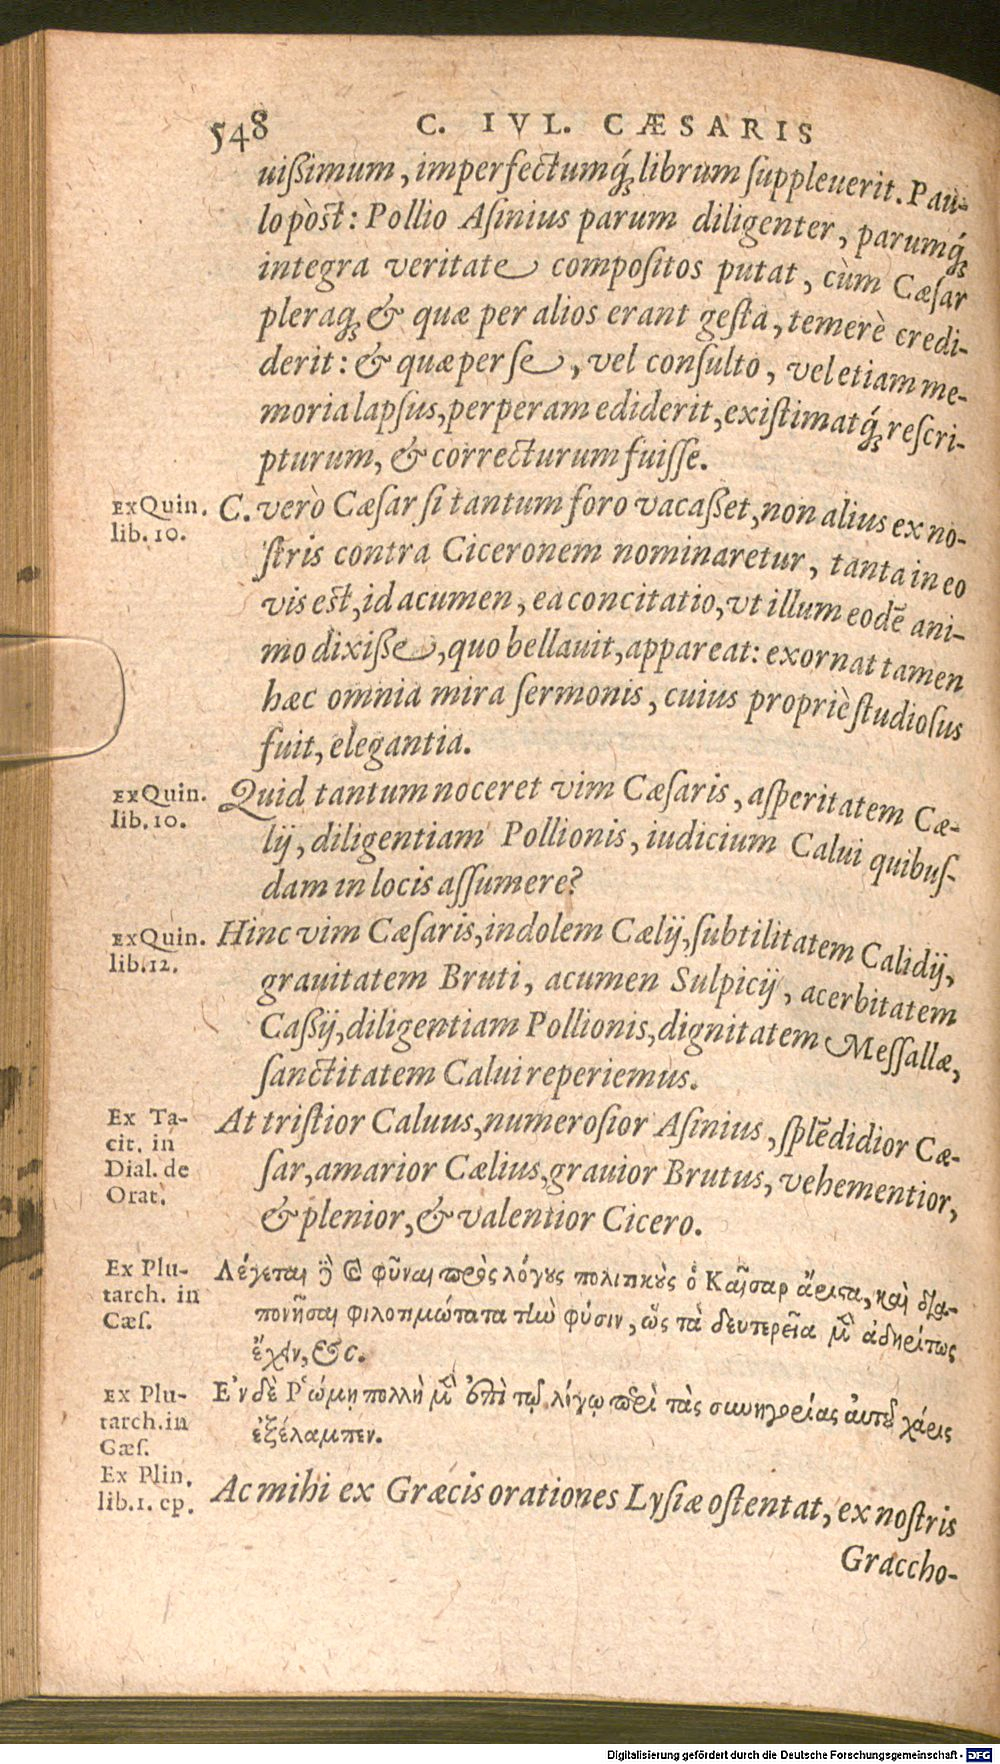 548
C. IVL. CÆSARIS
uißimum, imperfectumq́; librum ſuppleuerit. Pau-
lo pòst: Pollio Aſinius parum diligenter, parumq́;
integra veritate compoſitos putat, cùm Cæſar
pleraq; & quæ per alios erant geſta, temerè credi-
derit: & quæ per ſe, vel conſulto, vel etiam me-
moria lapſus, perperam ediderit, exiſtimatq́; reſcri-
pturum, & correcturum fuiſſe.
ExQuin.
lib. 10.
C. verò Cæſar ſi tantum foro vacaßet, non alius ex no-
ſtris contra Ciceronem nominaretur, tanta in eo
vis est, id acumen, ea concitatio, vt illum eodē ani-
mo dixiße, quo bellauit, appareat: exornat tamen
hæc omnia mira ſermonis, cuius propriè ſtudioſus
fuit, elegantia.
ExQuin.
lib. 10.
Quid tantum noceret vim Cæſaris, aſperitatem Cæ-
lij, diligentiam Pollionis, iudicium Calui quibuſ-
dam in locis aſſumere?
ExQuin.
lib. 12.
Hinc vim Cæſaris, indolem Cælij, ſubtilitatem Calidij,
grauitatem Bruti, acumen Sulpicij, acerbitatem
Caßij, diligentiam Pollionis, dignitatem Meſſallæ,
ſanctitatem Calui reperiemus.
Ex Ta-
cit. in
Dial. de
Orat.
At triſtior Caluus, numeroſior Aſinius, ſplēdidior Cæ-
ſar, amarior Cælius, grauior Brutus, vehementior,
& plenior, & valentior Cicero.
Ex Plu-
tarch. in
Cæſ.
Λέγεται ὃ καὶ φῦναι πρὸς λόγους πολιτικοὺς ὁ Καῖσαρ ἄριστα, καὶ δια-
πονῆσαι φιλοτιμώτατα τὴν φύσιν, ὡς τὰ δευτερεῖα μὲν ἀδηρίτως
ἔχειν, &c.
Ex Plu-
tarch. in
Cæſ.
Ἐν δὲ Ῥώμῃ πολλὴ μὲν ἐπὶ τῷ λόγῳ περὶ τὰς συνηγορίας αὐτοῦ χάρις
ἐξέλαμπεν.
Ex Plin.
lib. 1. ep.
Ac mihi ex Græcis orationes Lyſiæ oſtentat, ex noſtris
Graccho-
Digitalisierung gefördert durch die Deutsche Forschungsgemeinschaft - DFG